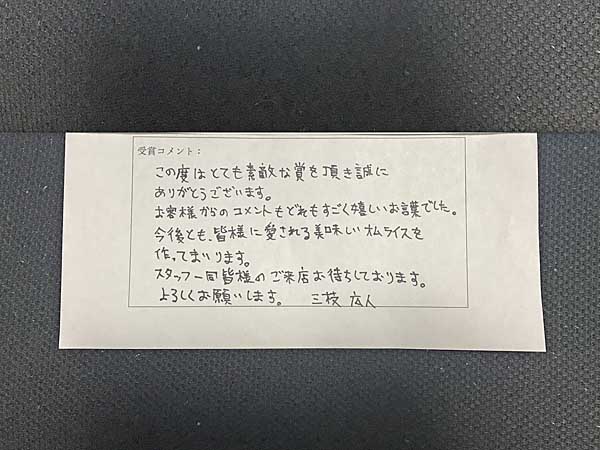 受賞コメント：
この度はとても素敵な賞を頂き誠に
ありがとうございます。
お客様からのコメントもどれもすごく嬉しいお言葉でした。
今後とも、皆様に愛される美味しいオムライスを
作ってまいります。
スタッフ一同皆様のご来店お待ちしております。
よろしくお願いします。 三枝 広人